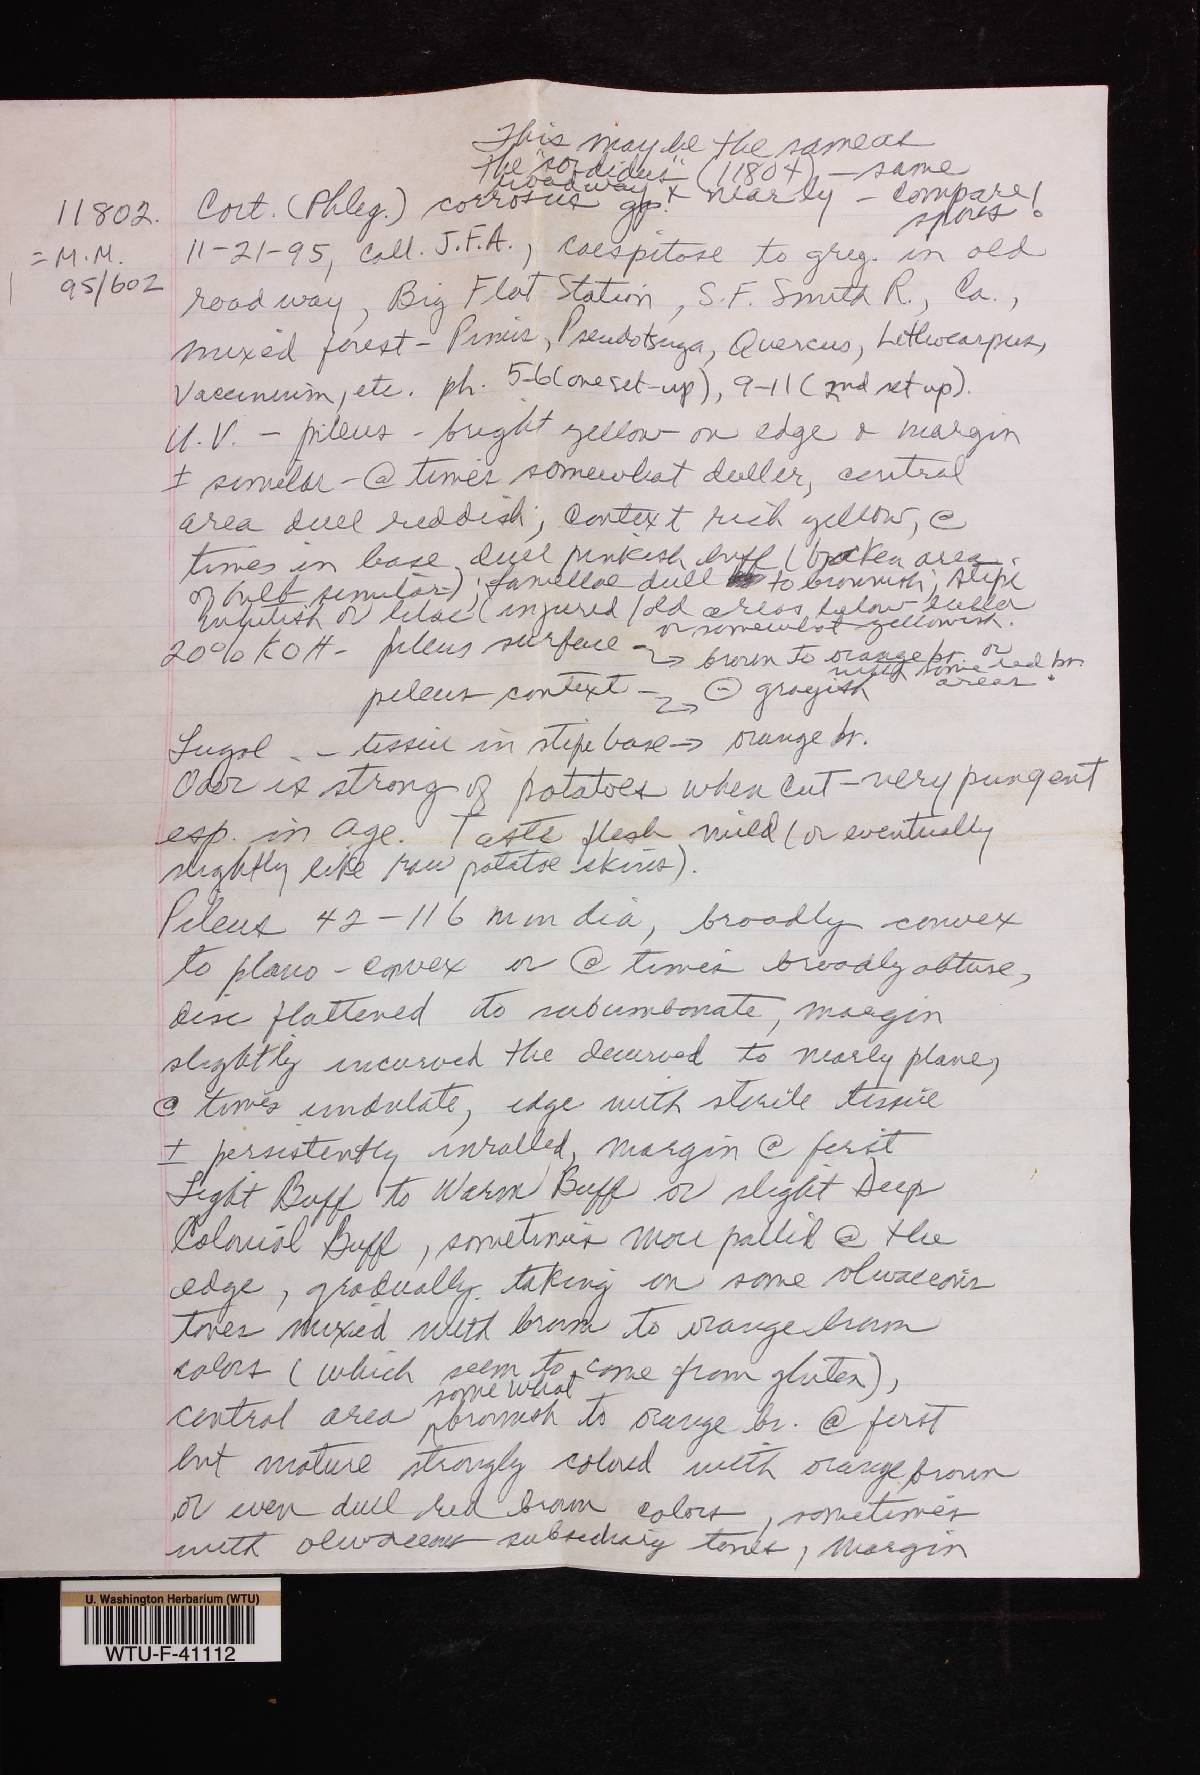 This may be the same as
the "sordidus" (11804) – same
roadway & nearly – compare
spores!
11802. Cort. (Phleg.) corrosus gp.
= M.M.
95/602
11-21-95, Coll. J.F.A., caespitose to greg. in old
roadway, Big Flat Station, S.F. Smith R., Ca.,
mixed forest – Pinus, Pseudotsuga, Quercus, Lithocarpus,
Vaccinium, etc. ph. 5-6 (one set-up), 9-11 (2nd set up).
U.V. – pileus – bright yellow on edge & margin
± similar – @ times somewhat duller, central
area dull reddish; Context rich yellow, @
times in base dull pinkish buff (broken area
of bulb similar); lamellae dull to brownish; stipe
whitish or lilac (injured/old areas below duller
or somewhat yellowish.
20% KOH – pileus surface –> brown to orange br. or
with some red br.
areas.
pileus context –> ⊖ grayish
Lugol – tissue in stipe base –> orange br.
Odor is strong of potatoes when cut – very pungent
esp. in age. Taste flesh mild (or eventually
slightly like raw potatoe skins).
Pileus 42 – 116 mm dia, broadly convex
to plano-convex or @ times broadly obtuse,
disc flattened to subumbonate, margin
slightly incurved the decurved to nearly plane,
@ times undulate, edge with sterile tissue
± persistently inrolled, margin @ first
Light Buff to Warm Buff or slight Deep
Colonial Buff, sometimes more pallid @ the
edge, gradually taking on some olivaceous
tones mixed with brown to orange brown
colors (which seem to come from gluten),
central area somewhat brownish to orange br. @ first
but mature strongly colored with orange brown
or even dull red brown colors, sometimes
with olivaceous subsidiary tones, margin
U. Washington Herbarium (WTU)
WTU-F-41112